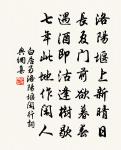 洛陽堰上新晴日
長夏門前欲暮春
遇酒即沽逢樹歇
七年此地作閑人
白居易洛陽堰閑行詞
典綱集